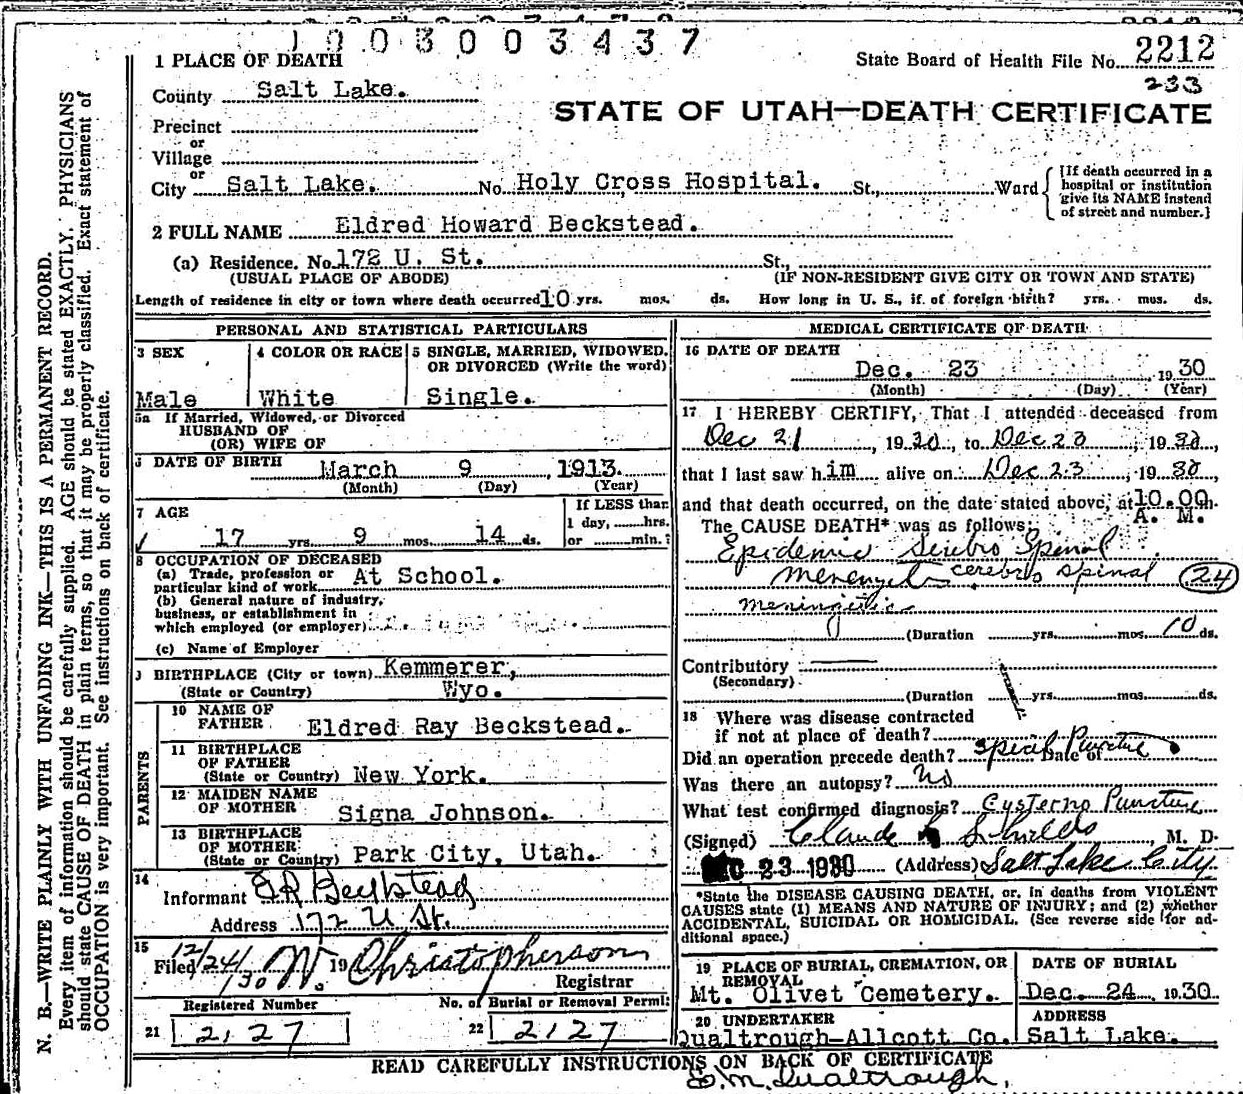 1003003437
State Board of Health File No. 2212
233
1 PLACE OF DEATH
County Salt Lake.
STATE OF UTAH—DEATH CERTIFICATE
Precinct
or
Village
or
City Salt Lake. No. Holy Cross Hospital. St., Ward
[If death occurred in a hospital or institution give its NAME instead of street and number.]
2 FULL NAME Eldred Howard Beckstead.
(a) Residence. No. 172 U. St. St.,
(USUAL PLACE OF ABODE) (IF NON-RESIDENT GIVE CITY OR TOWN AND STATE)
Length of residence in city or town where death occurred 10 yrs. mos. ds. How long in U. S., if of foreign birth? yrs. mos. ds.
PERSONAL AND STATISTICAL PARTICULARS
3 SEX
Male
4 COLOR OR RACE
White
5 SINGLE, MARRIED, WIDOWED, OR DIVORCED (Write the word)
Single.
5a If Married, Widowed, or Divorced
HUSBAND OF
(OR) WIFE OF
6 DATE OF BIRTH March 9, 1913.
(Month) (Day) (Year)
7 AGE
17 yrs. 9 mos. 14 ds.
If LESS than
1 day, hrs.
or min.?
8 OCCUPATION OF DECEASED
(a) Trade, profession or
particular kind of work At School.
(b) General nature of industry,
business, or establishment in
which employed (or employer)
(c) Name of Employer
9 BIRTHPLACE (City or town) Kemmerer,
(State or Country) Wyo.
PARENTS
10 NAME OF
FATHER Eldred Ray Beckstead.
11 BIRTHPLACE
OF FATHER
(State or Country) New York.
12 MAIDEN NAME
OF MOTHER Signa Johnson.
13 BIRTHPLACE
OF MOTHER
(State or Country) Park City, Utah.
14
Informant E R Beckstead
Address 172 U St.
15
Filed 12/24/30 W. 19 Christopherson
Registrar
Registered Number
21 2127
No. of Burial or Removal Permit
22 2127
MEDICAL CERTIFICATE OF DEATH
16 DATE OF DEATH
Dec. 23 1930
(Month) (Day) (Year)
17 I HEREBY CERTIFY, That I attended deceased from
Dec 21, 1930, to Dec 23, 1930,
that I last saw him alive on Dec 23, 1930
and that death occurred, on the date stated above, at 10.00 m.
A. M.
The CAUSE DEATH* was as follows:
Epidemic Serebro Spinal
cerebro spinal 24
meningitis
(Duration yrs. mos. 10 ds.
Contributory
(Secondary)
(Duration yrs. mos. ds.
18 Where was disease contracted
if not at place of death?
Did an operation precede death? Spinal Puncture Date of
Was there an autopsy? No
What test confirmed diagnosis? Cysterna Puncture
(Signed) Claude Shields, M. D.
DEC 23 1930 (Address) Salt Lake City
*State the DISEASE CAUSING DEATH, or, in deaths from VIOLENT
CAUSES state (1) MEANS AND NATURE OF INJURY; and (2) whether
ACCIDENTAL, SUICIDAL OR HOMICIDAL. (See reverse side for ad-
ditional space.)
19 PLACE OF BURIAL, CREMATION, OR
REMOVAL
Mt. Olivet Cemetery.
DATE OF BURIAL
Dec. 24 1930.
20 UNDERTAKER
Qualtrough-Allcott Co.
ADDRESS
Salt Lake.
READ CAREFULLY INSTRUCTIONS ON BACK OF CERTIFICATE
Qualtrough,
N. B.—WRITE PLAINLY WITH UNFADING INK—THIS IS A PERMANENT RECORD.
Every item of information should be carefully supplied. AGE should be stated EXACTLY. PHYSICIANS
should state CAUSE OF DEATH in plain terms, so that it may be properly classified. Exact statement of
OCCUPATION is very important. See instructions on back of certificate.